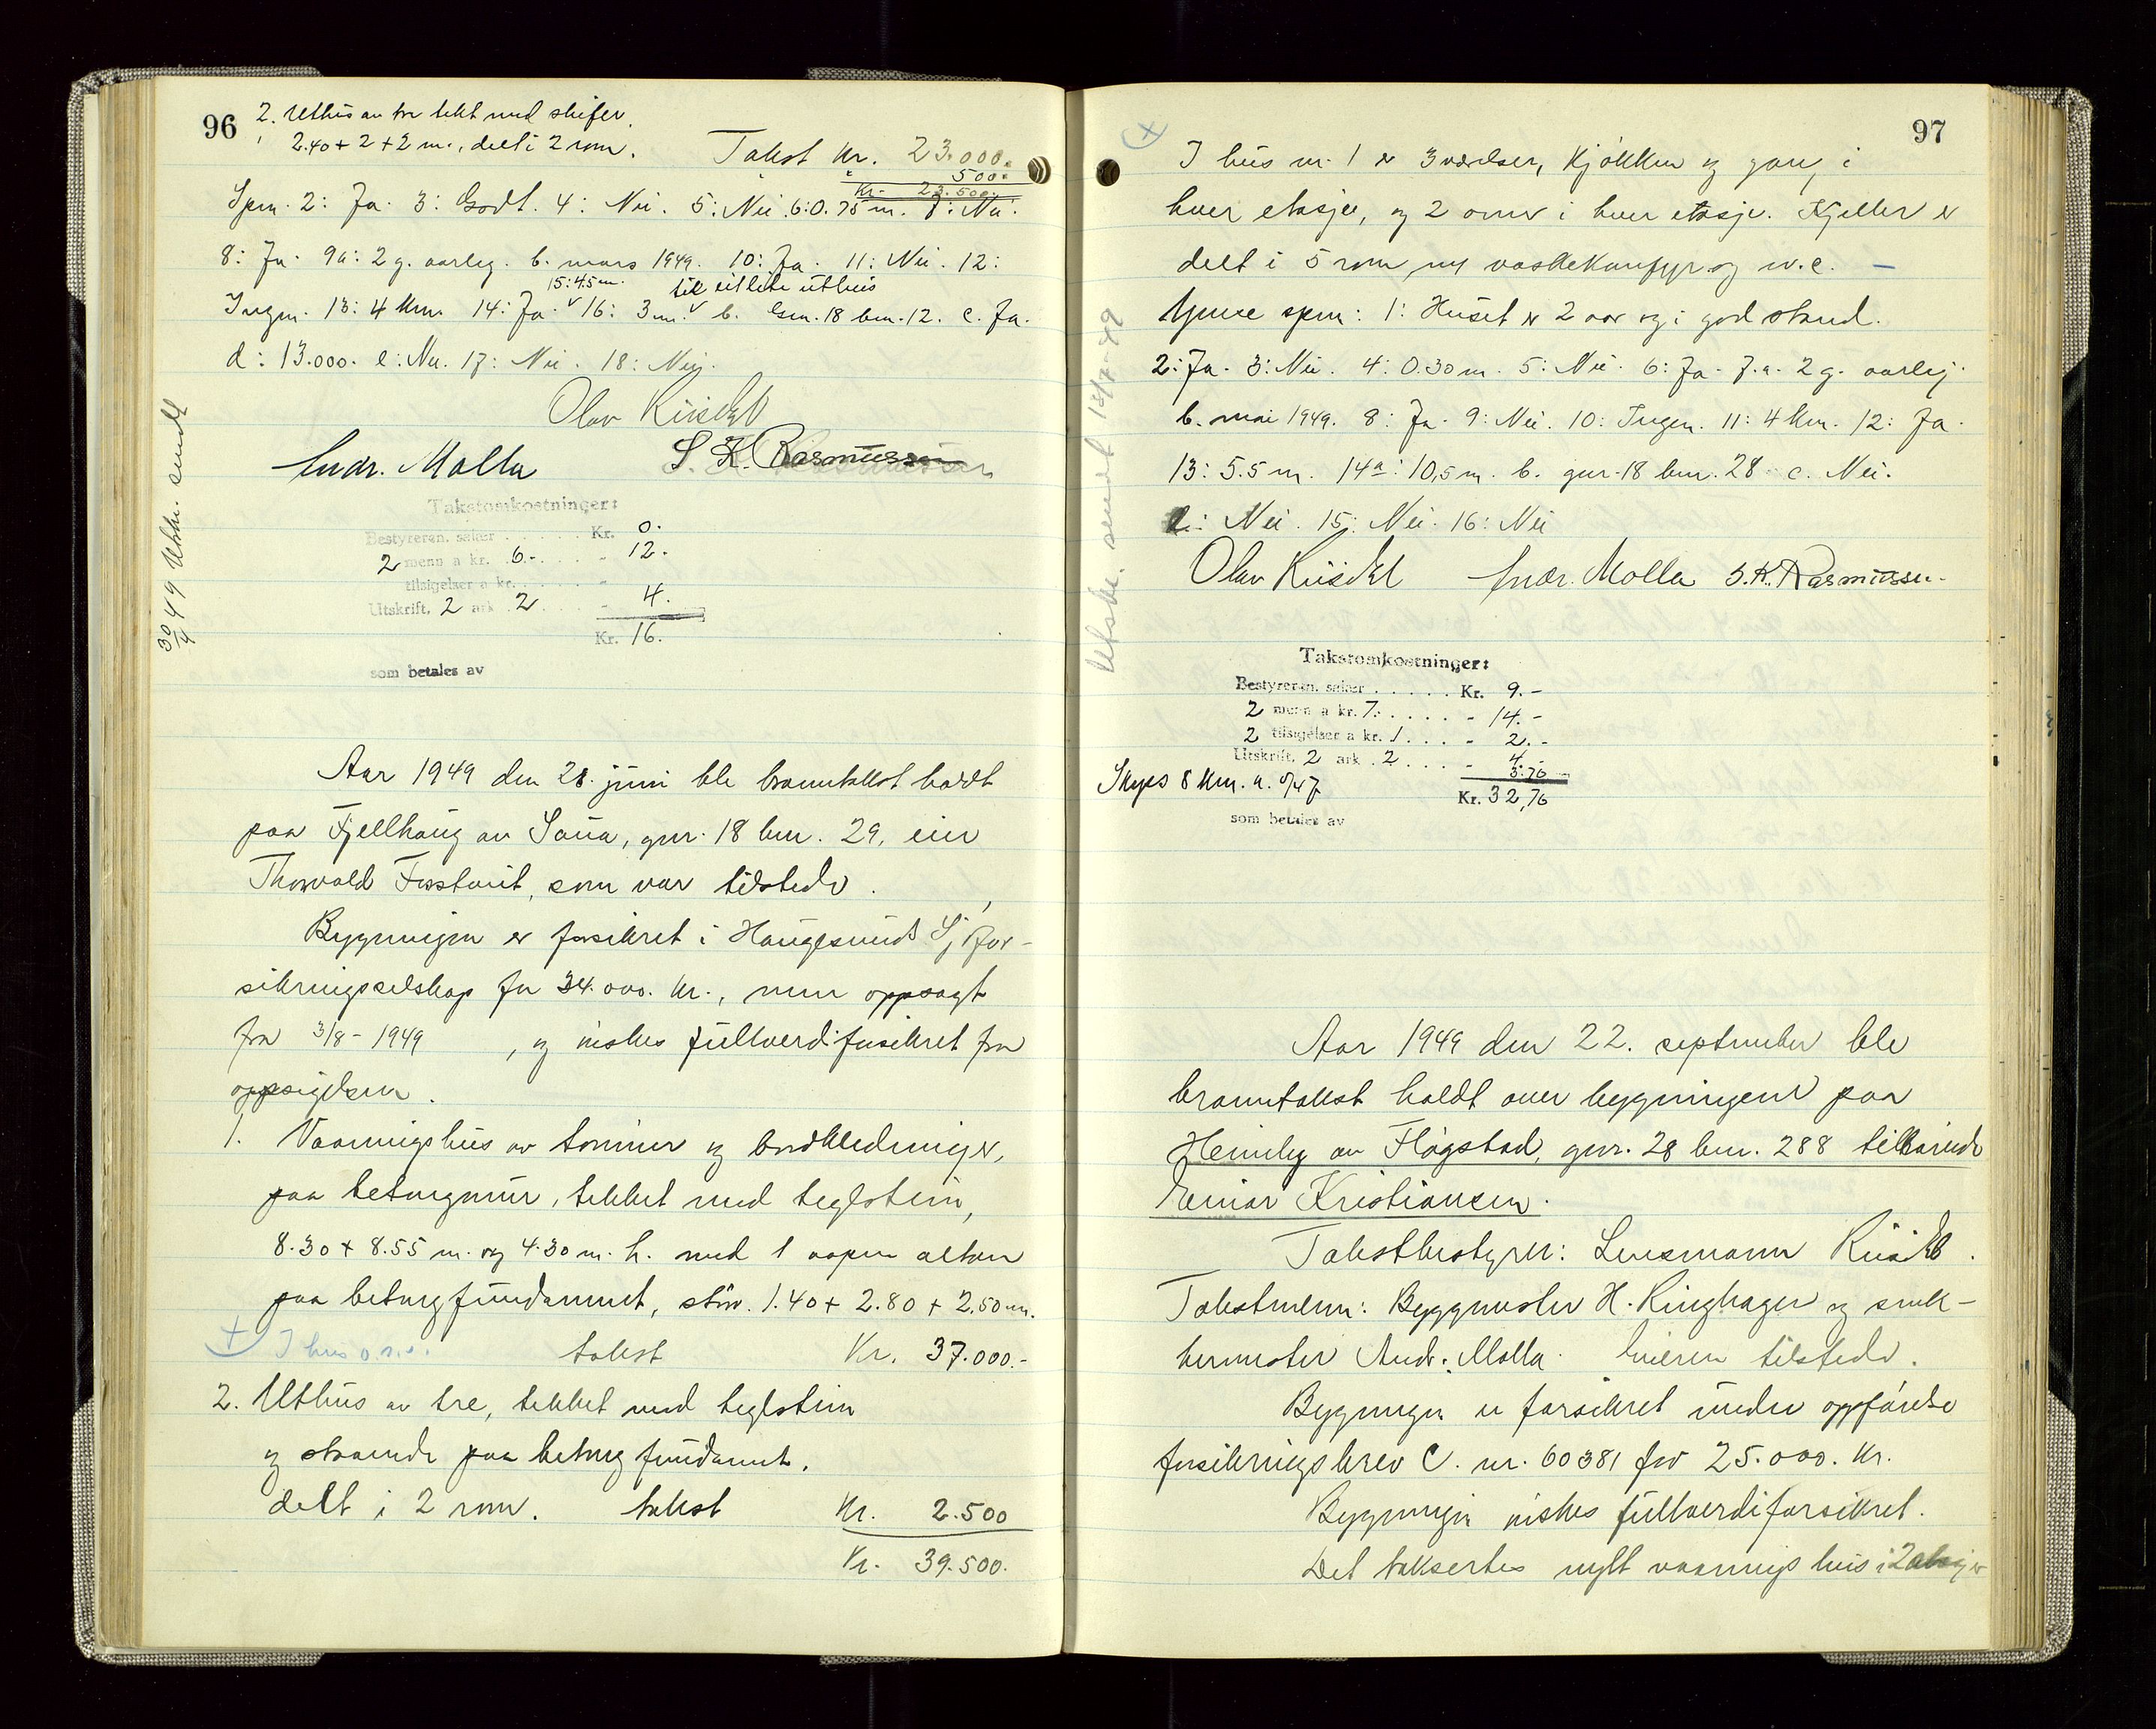 96
2. Uthus av tre tekt med skifer.
2.40 + 2 + 2 m., delt i 2 rom.
Takst kr. 23.000.
500.
Kr. 23.500.
Spm. 2: Ja. 3: Godt. 4: Nei. 5: Nei 6: 0.75 m. 7: Nei.
8: Ja. 9a: 2 g. aarleg. b. mars 1949. 10: Ja. 11: Nei. 12:
15: 4.5 m. til eitlite uthus
Ingen. 13: 4 km. 14: Ja. 16: 3 m. b. Gnr. 18 bnr. 12. c. Ja.
d: 13.000. e: Nei. 17: Nei. 18: Nei.
Olav
Andr. Molla S. K. Rasmussen
30/4 49 Utskr. sendt
Takstomkostninger:
Bestyreren. salær . . . . . . Kr. 0.
2 menn a kr. 6.- . . . . - 12.
tilsigelser a kr. . . . . . -
Utskrift. 2 ark 2 . . . . - 4.
Kr. 16.
som betales av
Aar 1949 den 28. juni ble branntakst holdt
paa Fjellhaug av Saua, gnr. 18 bnr. 29, eier
Thorvald, som var tilstede.
Bygningen er forsikret i Haugesunds Sjøfor-
sikringsselskap for 34.000. kr., men oppsagt
fra 3/8 - 1949 , og ønskes fullverdiforsikret fra
oppsigelsen.
1. Vaaningshus av tømmer og bordkledninger,
paa betongmur, tekket med teglstein,
8.30 + 8.55 m. og 4.30 m. h. med 1 aapen altan
paa betongfundament, stør. 1.40 + 2.80 + 2.50 m.
+ I hus o.s.v. takst Kr. 37.000.-
2. Uthus av tre, tekket med teglstein
og staaende paa betongfundament.
delt i 2 rom. takst Kr. 2.500
Kr. 39.500.
97
+
I hus nr. 1 er 3 værelser, kjøkken og gang i
hver etasje, og 2 ovner i hver etasje. Kjeller er
delt i 5 rom m/ vaskekomfyr og w.c. -
spm: 1: Huset er 2 aar og i god stand.
2: Ja. 3: Nei. 4: 0.30 m. 5: Nei. 6: Ja. 7.a. 2 g. aarleg.
b. mai 1949. 8: Ja. 9: Nei. 10: Ingen. 11: 4 km. 12: Ja.
13: 5.5 m. 14a: 10,5 m. b. gnr. 18 bnr. 28 c. Nei.
Nei. 15: Nei. 16: Nei
Olav Andr. Molla S. K. Rasmussen.
Utskr. sendt
Takstomkostninger:
Bestyreren. salær . . . . . Kr. 9.-
2 menn a kr. 7. . . . . - 14.-
2 tilsigelser a kr. 1 . . . . - 2.-
Utskrift. 2 ark . 2 . . . . - 4.-
Skyss 8 km. a. 0/47 3.76
Kr. 32,76
som betales av
Aar 1949 den 22. september ble
branntakst holdt over bygningene paa
Heimly av Fløgstad, gnr. 28 bnr. 288 tilhørende
Einar Kristiansen.
Takstbestyrer: Lensmann
Takstmenn: Byggmester H. Ringhagen og snek-
kermester Andr. Molla. Eieren tilstede.
Bygningen er forsikret under oppførelse
forsikringsbrev C. nr. 60381 for 25.000. kr.
Bygningen ønskes fullverdiforsikret.
Det takseres nytt vaaningshus i 2 etasjer